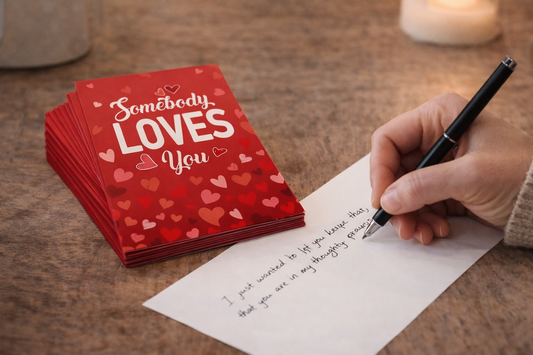 Somebody
LOVES
You
I just wanted to let you keype that,
that you are in my thoughty prayis